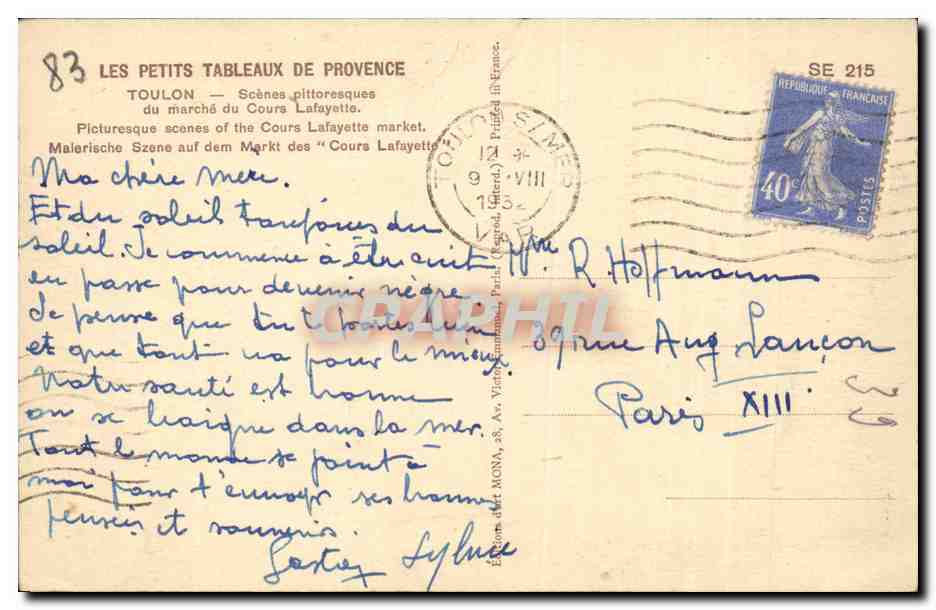 83
LES PETITS TABLEAUX DE PROVENCE
TOULON — Scènes pittoresques
du marché du Cours Lafayette.
Picturesque scenes of the Cours Lafayette market.
Malerische Szene auf dem Markt des "Cours Lafayette
Ma chère mère.
Et du soleil toujours du
soleil. Je commence à être cuit
en passe pour devenir nègre.
Je pense que tu te portes bien
et que tout va pour le mieux.
Notre santé est bonne
on se baigne dans la mer.
Tout le monde se joint à
moi pour t'envoyer ses bonnes
pensées et souvenirs.
Sylvie
Editions d'art MONA, 28, Av. Victor-Emmanuel, Paris. (Reprod. interd.) Printed in France.
TOULON S/MER
12 *
9 - VIII
1932
VAR
SE 215
REPUBLIQUE FRANÇAISE
40c
POSTES
Mme R. Hoffmann
39 rue Aug Lançon
Paris XIII
39
CPAPHIL